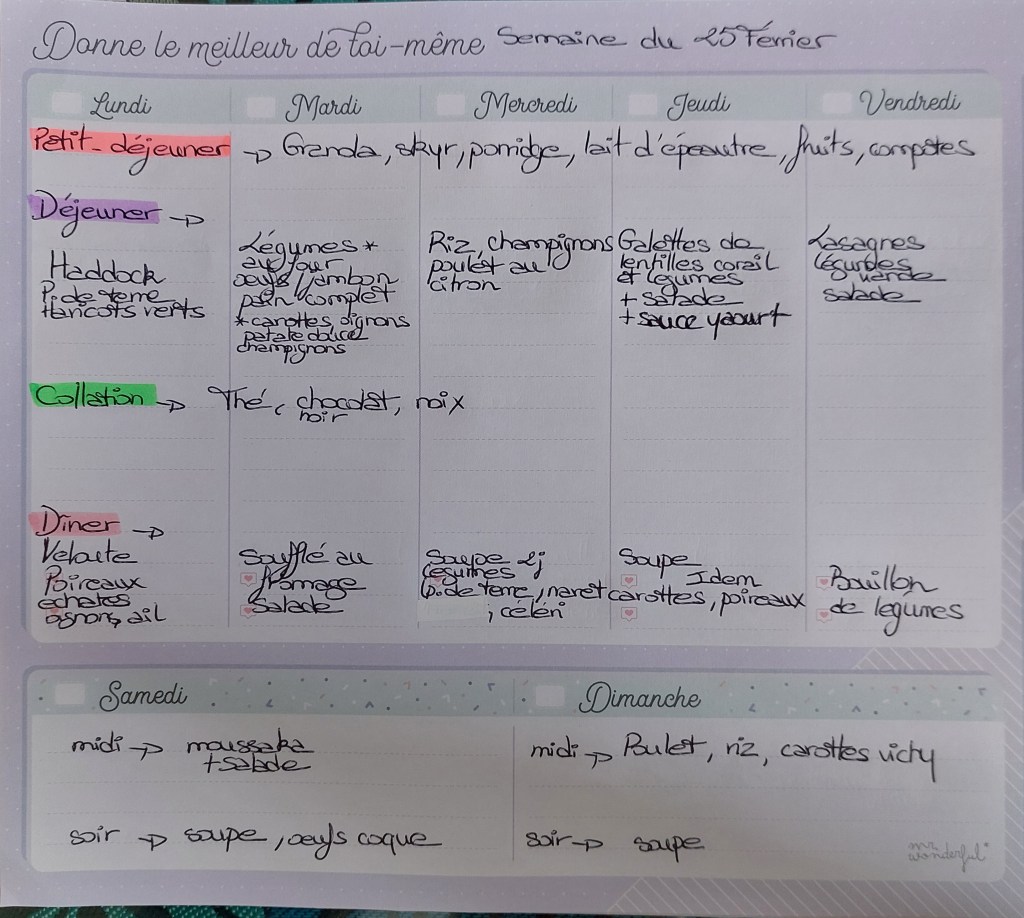 Donne le meilleur de toi-même Semaine du 25 Février
Lundi Mardi Mercredi Jeudi Vendredi
Petit-déjeuner → Granola, skyr, porridge, lait d'épeautre, fruits, compotes
Déjeuner →
Haddock
P. de terre
Haricots verts
Légumes *
au four
oeufs / jambon
pain complet
* carottes, oignons
patate douce
champignons
Riz, champignons
poulet au
citron
Galettes de
lentilles corail
et légumes
+ salade
+ sauce yaourt
Lasagnes
légumes
salade verte
Collation → Thé, chocolat, noix
noir
Dîner →
Velouté
Poireaux
échalotes
oignons, ail
Soufflé au
fromage
Salade
Soupe 2j
légumes
P. de terre, navet carottes, poireaux
, céleri
Soupe
Idem
Bouillon
de légumes
Samedi
midi → moussaka
+ salade
soir → soupe, oeufs coque
Dimanche
midi → Poulet, riz, carottes vichy
soir → soupe
mr.
wonderful*